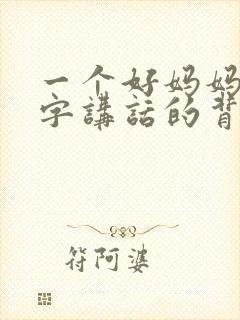 一个好妈妈
字講話的背
符阿婆